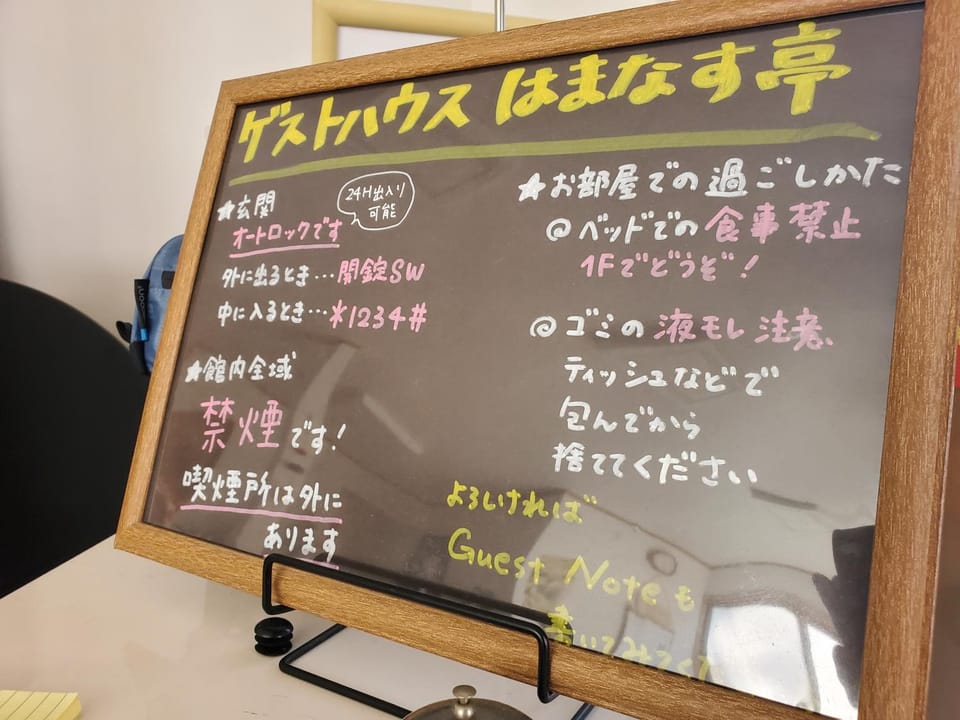 ゲストハウス はまなす亭
★玄関
24H出入り
可能
オートロックです
外に出るとき…開錠SW
中に入るとき…*1234#
★館内全域
禁煙です!
喫煙所は外に
あります
★お部屋での過ごしかた
@ベッドでの食事禁止
1Fでどうぞ!
@ゴミの液モレ注意
ティッシュなどで
包んでから
捨ててください
よろしければ
Guest Noteも
書いてみてくて